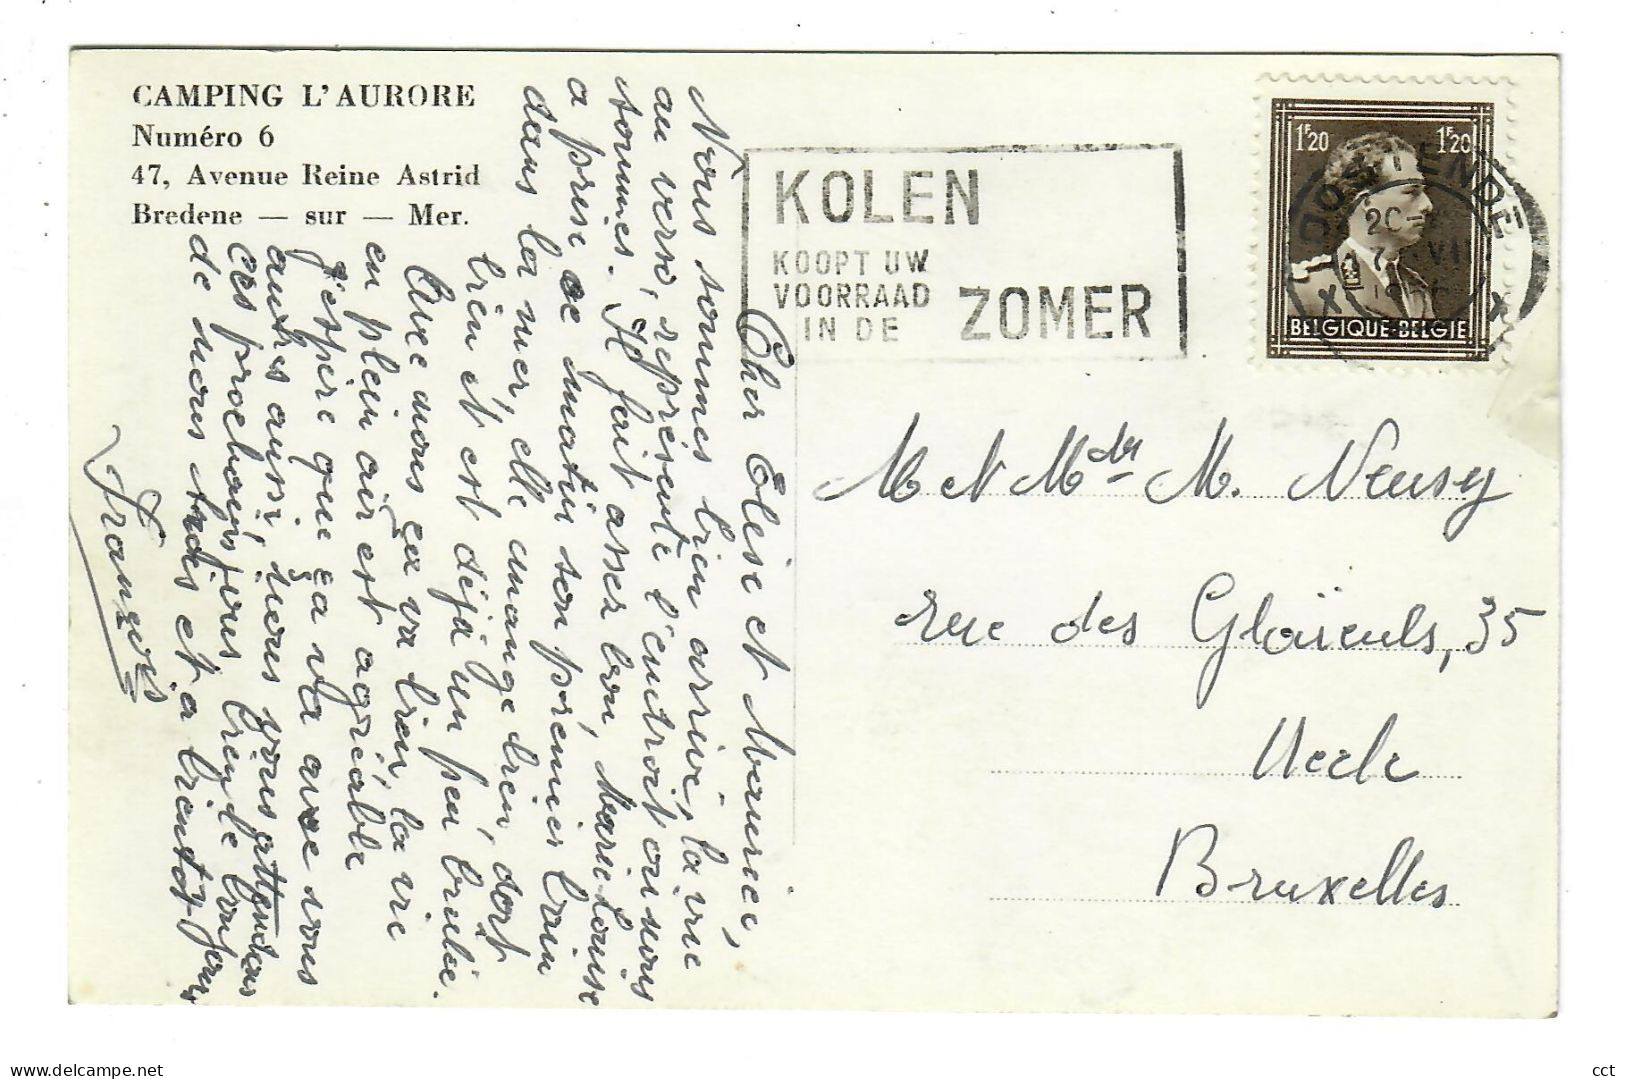 CAMPING L'AURORE
Numéro 6
47, Avenue Reine Astrid
Bredene — sur — Mer.
KOLEN
KOOPT UW
VOORRAAD
IN DE
ZOMER
1F20 1F20
OOSTENDE
BELGIQUE-BELGIE
Cher Elise et Maurice,
Nous sommes bien arrivé, la vue
au verso, représente l'endroit ou nous
sommes. Il fait assez bon, Marie-Louise
a prise ce matin son premier bain
dans la mer, elle mange bien, dort
bien et est déjà un peu brulée.
Avec nous ça va bien, la vie
en plein air est agréable
J'espire que ça va avec vous
autres aussi, nous vous attendons
ces prochains jours bien le bonj
de nous tades et a bientot
François
M et Mde M. Neusy
rue des Glaïeuls, 35
Uccle
Bruxelles
cct
www.delcampe.net